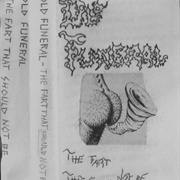 OLD FUNERAL
THE FART THAT SHOULD NOT BE
OLD FUNERAL - THE FART THAT SHOULD NOT
OLD
FUNERAL
THE FART
NOT BE